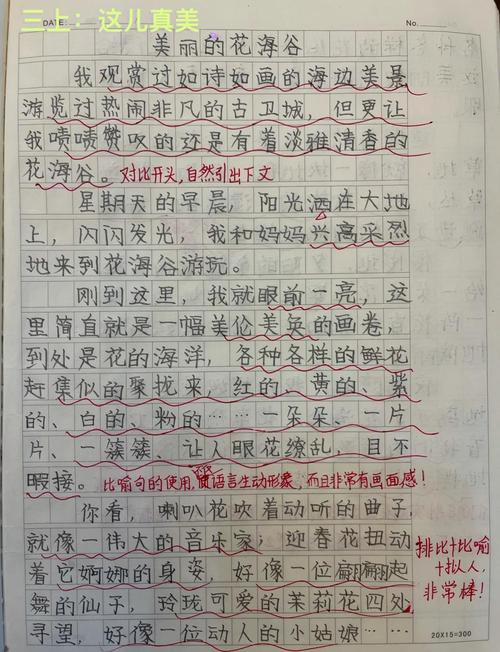 三上：这儿真美
DATE:
No.
美丽的花海谷
我观赏过如诗如画的海边美景
游览过热闹非凡的古卫城，但更让
我啧啧赞叹的还是有着淡雅清香的
花海谷。对比开头，自然引出下文
星期天的早晨，阳光洒在大地
上，闪闪发光，我和妈妈兴高采烈
地来到花海谷游玩。
刚到这里，我就眼前一亮，这
里简直就是一幅美伦美奂的画卷，
到处是花的海洋，各种各样的鲜花
赶集似的聚拢来，红的、黄的、紫
的、白的、粉的……一朵朵、一片
片、一簇簇、让人眼花缭乱，目不
暇接。比喻句的使用，使语言生动形象，而且非常有画面感！
你看，喇叭花吹着动听的曲子
就像一伟大的音乐家；迎春花扭动
着它婀娜的身姿，好像一位翩翩起
舞的仙子，玲珑可爱的茉莉花四处
寻望，好像一位动人的小姑娘……
排比+比喻
+拟人，
非常棒！
20X15=300